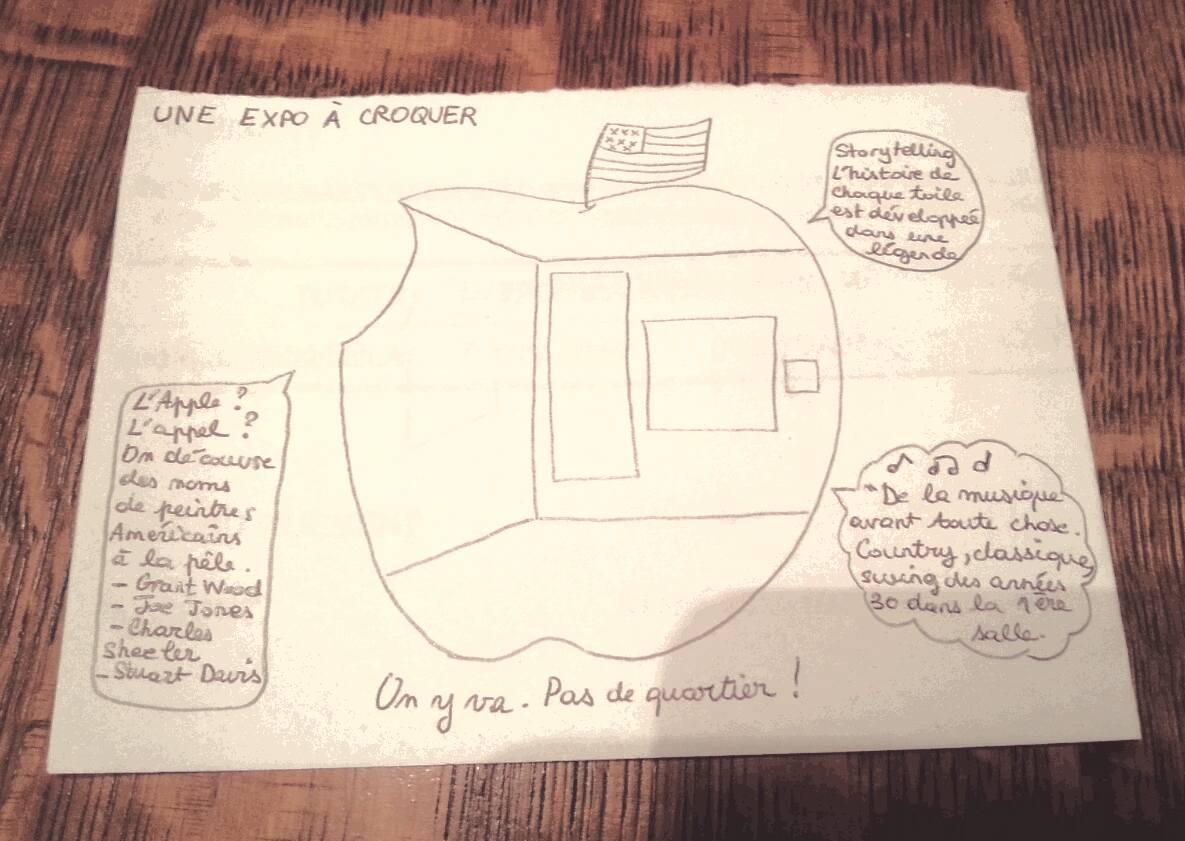 UNE EXPO À CROQUER
Storytelling
L'histoire de
chaque toile
est développée
dans une
légende
L'Apple ?
L'appel ?
On découvre
des noms
de peintres
Américains
à la pêle.
- Grant Wood
- Joe Jones
- Charles
Sheeler
- Stuart Davis
"De la musique
avant toute chose.
Country, classique,
swing des années
30 dans la 1ère
salle.
On y va. Pas de quartier !